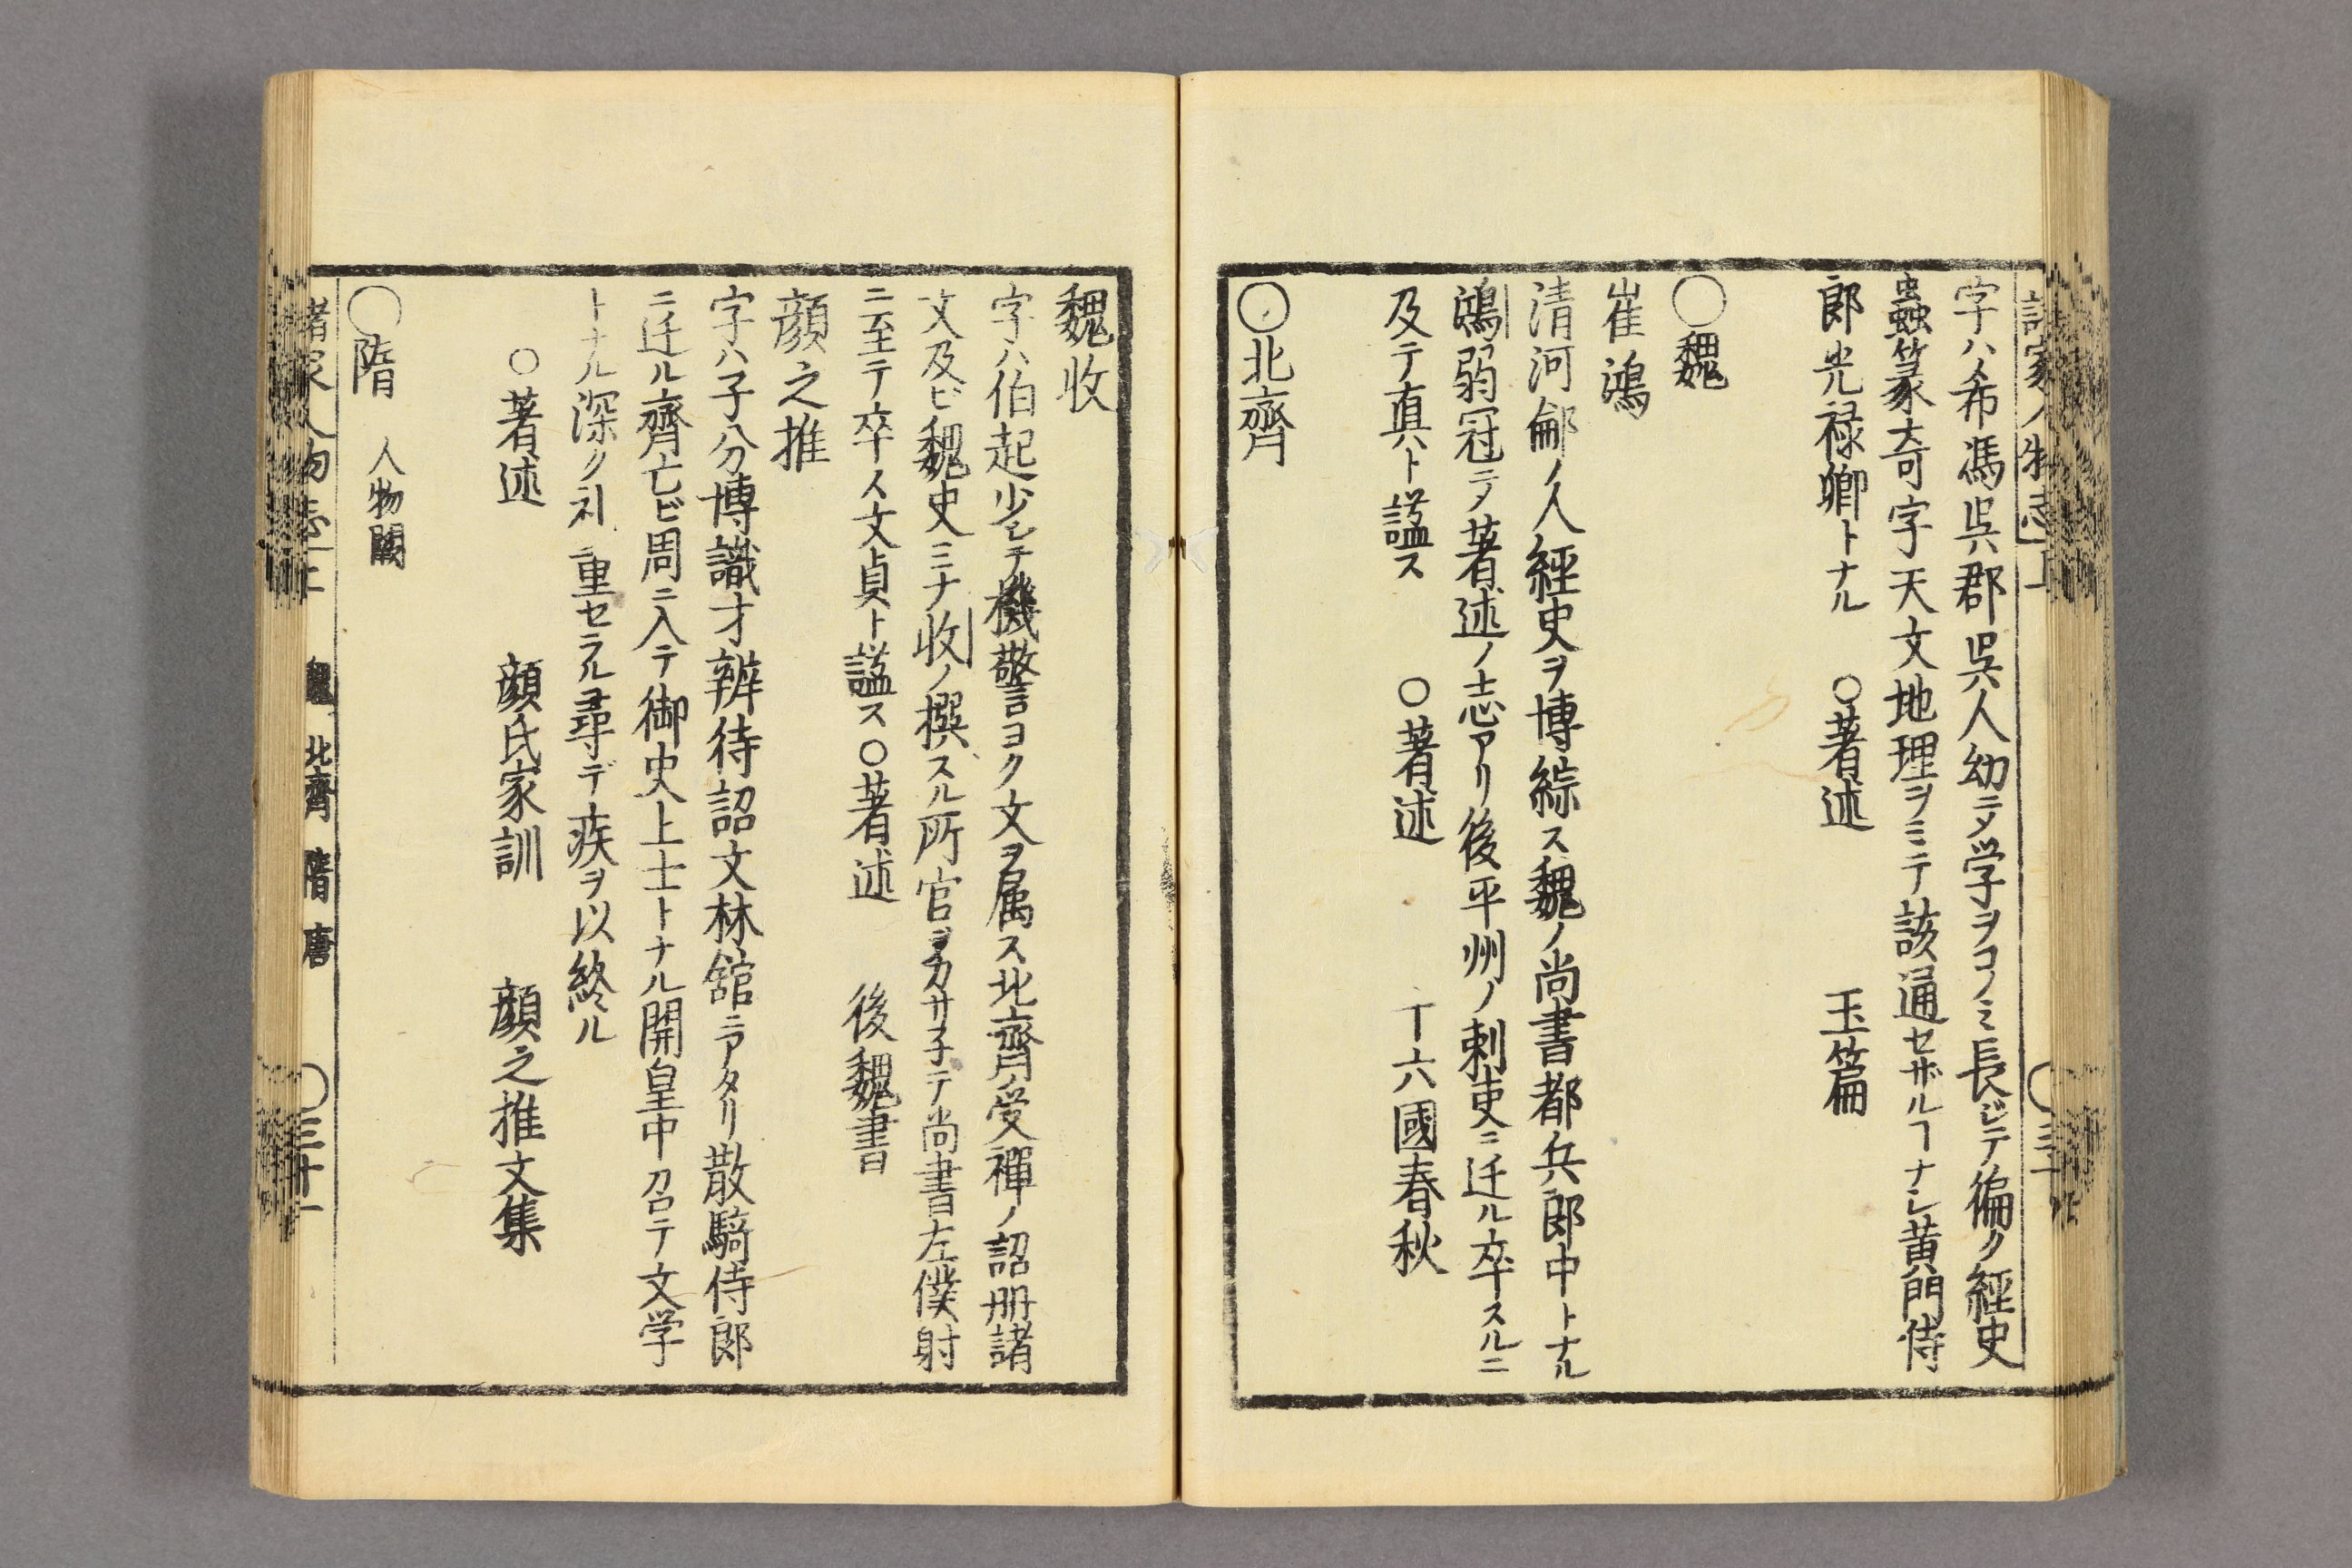 字ハ希馮呉郡呉人幼ニメ学ヲコノミ長ジテ徧ク經史
蟲篆奇字天文地理ヲミテ該通セザルヿナシ黄門侍
郎光禄卿トナル　○著述　玉篇
○魏
崔鴻
清河鄃ノ人經史ヲ博綜ス魏ノ尚書都兵郎中トナル
鴻弱冠ニメ著述ノ志アリ後平州ノ刺吏ニ迁ル卒スルニ
及テ真ト諡ス　○著述　十六國春秋
○北齊
魏收
字ハ伯起少シテ機警ヨク文ヲ属ス北齊受禪ノ詔册諸
文及ビ魏史ミナ收ノ撰スル所官ヲカサ子テ尚書左僕射
ニ至テ卒ス文貞ト諡ス○著述　後魏書
顔之推
字ハ子分博識才辨待詔文林舘ニアタリ散騎侍郎
ニ迁ル齊亡ビ周ニ入テ御史上士トナル開皇中召テ文学
トナル深ク礼重セラル尋デ疾ヲ以終ル
○著述　顔氏家訓　顔之推文集
○隋　人物闕
諸家人物志上　魏　北齊　隋　唐　○三十一